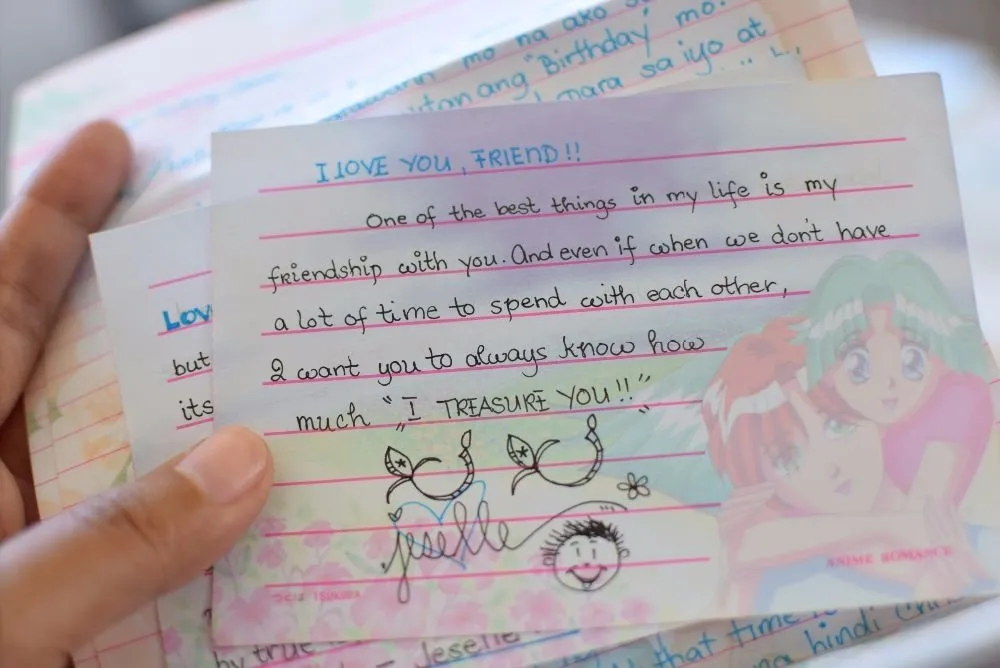 mo na ako
ang "Birthday" mo.
para sa iyo at
I LOVE YOU, FRIEND!!
One of the best things in my life is my
friendship with you. And even if when we don't have
a lot of time to spend with each other,
I want you to always know how
much "I TREASURE YOU!!"
jeselle
ANIME ROMANCE
LOV
but
its
by true
- Jeselle
that time
na hindi